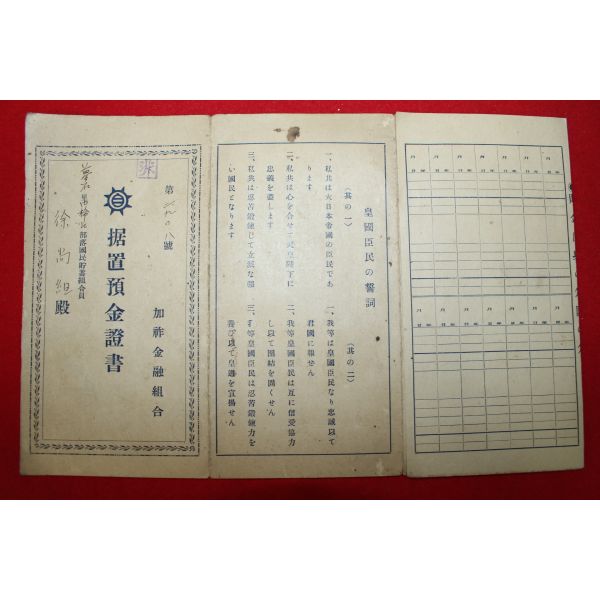 第 八號
加祚金融組合
据置預金證書
部落國民貯蓄組合員
徐尚組殿
皇國臣民の誓詞
(其の一)
一、私共は大日本帝國の臣民であ
ります
二、私共は心を合せて天皇陛下に
忠義を盡します
三、私共は忍苦鍛錬して立派な强
い國民となります
(其の二)
一、我等は皇國臣民なり忠誠以て
君國に報ぜん
二、我等皇國臣民は互に信愛協力
し以て團結を固くせん
三、我等皇國臣民は忍苦鍛錬力を
養ひ以て皇道を宣揚せん
月 月 月 月 月 月 月
月 月 月 月 月 月 月